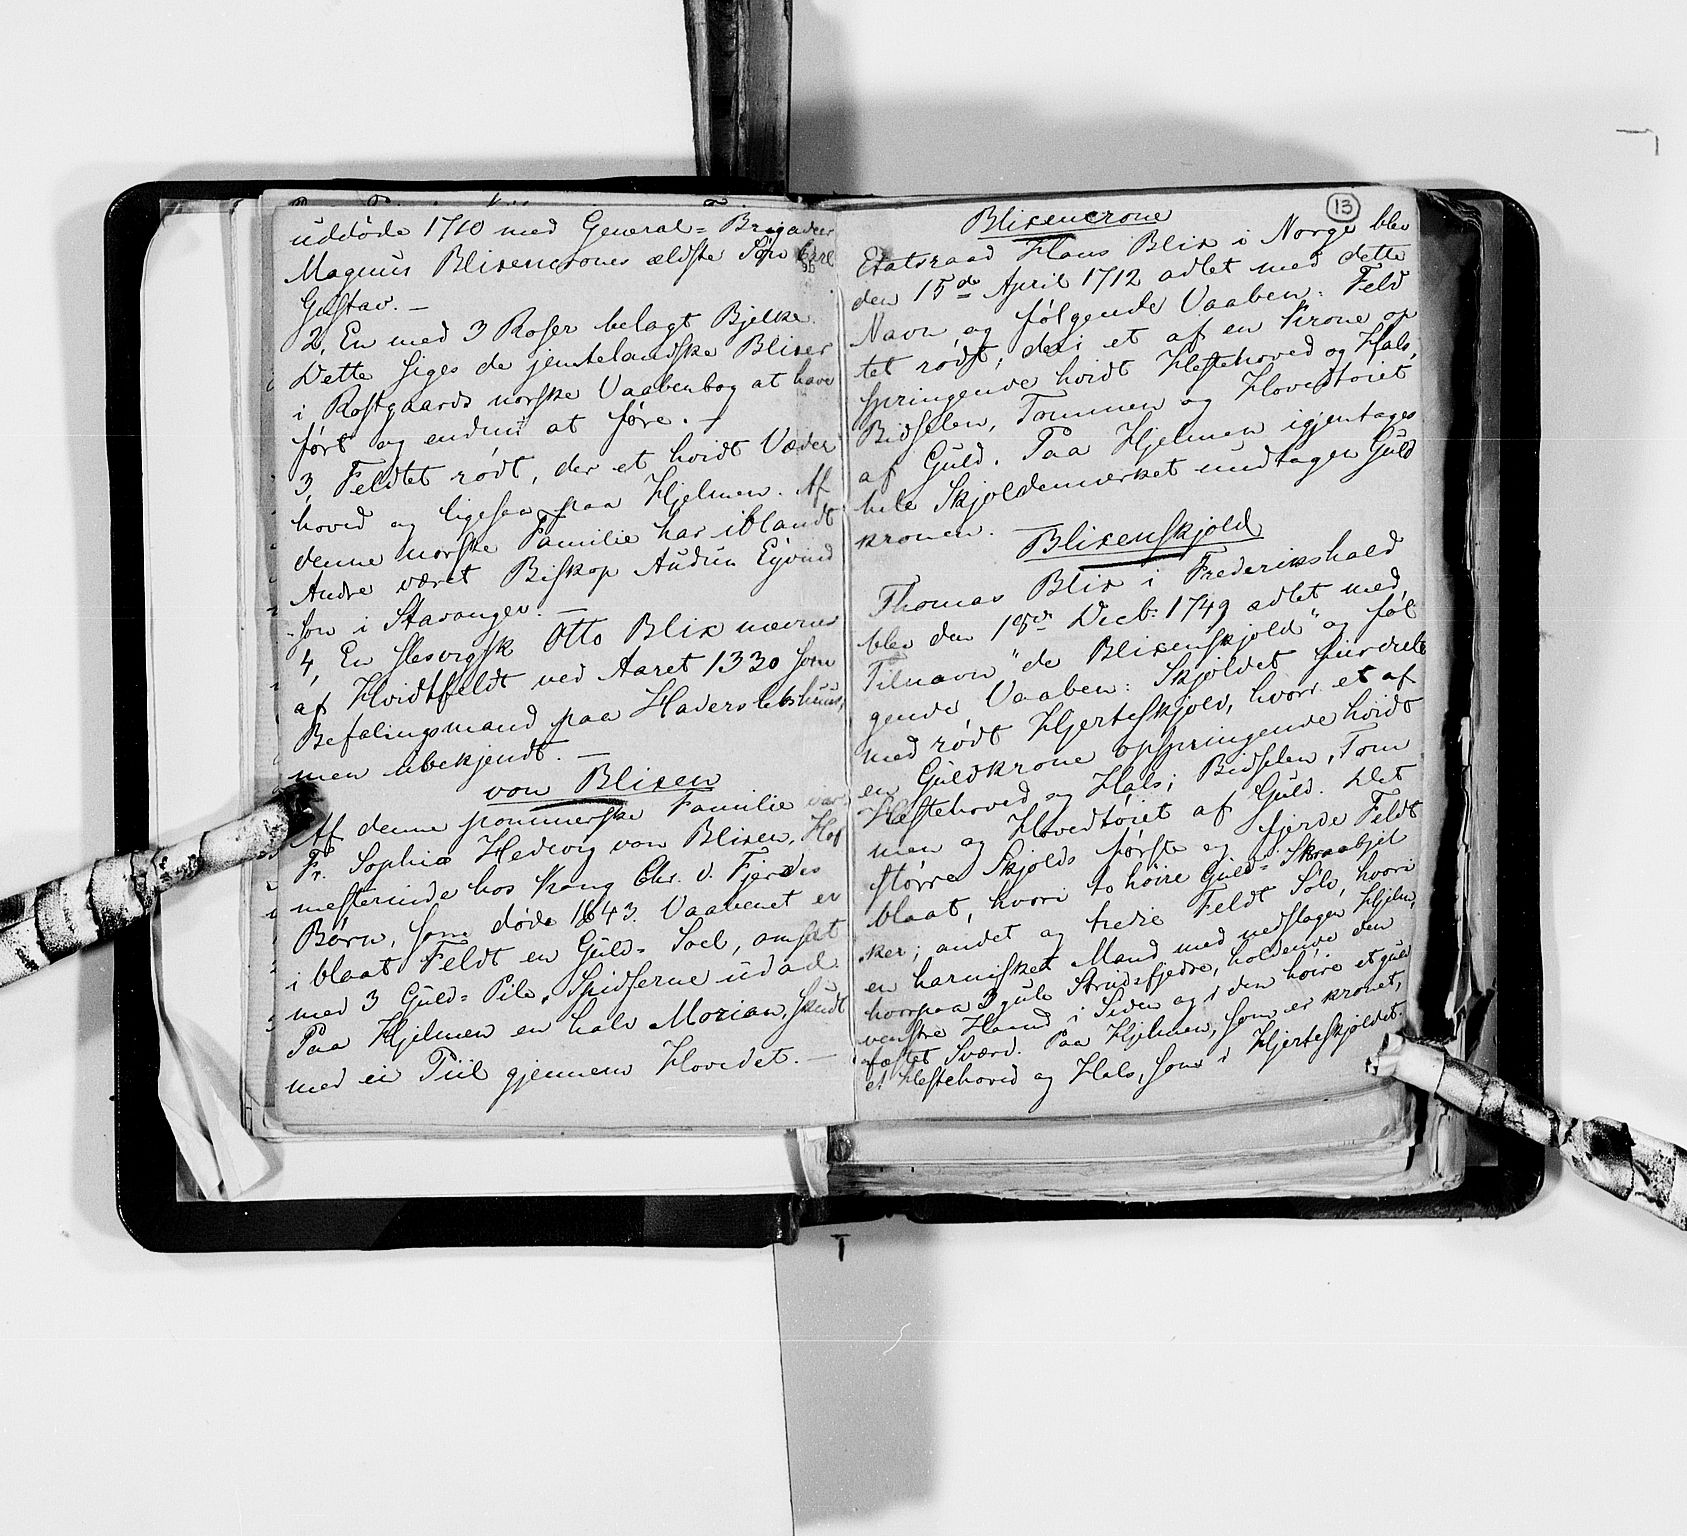 uddøde 1710 med General= Brigadeer
Magnus Blixencrones ældste Søn Carl
Gustav. —
2, En med 3 Roser belagt Bjelke.
Dette siges de jemtelandske Blixer
i Rostgaards norske Vaabenbog at have
ført og endnu at føre. —
3, Feldtet rødt, der et hvidt Væder
hoved og ligesaa paa Hjelmen. Af
denne norske Familie har iblandt
Andre været Biskop Audun Eyvind
-søn i Stavanger. —
4, En slesvigsk Otto Blix nævnes
af Hvidtfeldt ved Aaret 1330 som
Befalingsmand paa Haderslebshuus,
men ubekjendt. —
von Blixen
Af denne pommerske Familie var
Fr. Sophia Hedevig von Blixen, Hof
mesterinde hos Kong Chr. d. Fjerdes
Børn, som døde 1643. Vaabenet er
i blaat Feldt en Guld= Soel, omsat
med 3 Guld= Pile, Spidserne udad.
Paa Hjelmen en halv Morian, skudt
med en Piil gjennem Hovedet. —
13
Blixencrone
Etatsraad Hans Blix i Norge blev
den 15de April 1712 adlet med dette
Navn og følgende Vaaben: Feld
tet rødt; deri et af en Krone op
springende hvidt Hestehoved og Hals,
Bidselen, Tømmen og Hovedtøiet
af Guld. Paa Hjelmen igjentages
hele Skjoldemærket undtagen Guld
kronen.
Blixenskjold
Thomas Blix i Frederikshald
blev den 18de Decb. 1749 adlet med
Tilnavn "de Blixenskjold" og føl
gende Vaaben: Skjoldet fiirdeelt
med rødt Hjerteskjold, hvori et af
en Guldkrone opspringende hvidt
Hestehoved og Hals; Bidselen, Tøm
men og Hovedtøiet af Guld. Det
større Skjolds første og fjerde Feldt
blaat, hvori to høire Guld= Skraabjel
ker; andet og tredie Feldt Sølv, hvori
en harnisket Mand med nedslagen Hjelm,
hvorpaa 3 gule Strudsfjedre, holdende den
venstre Haand i Siden og i den høire et guld
fæstet Sværd. Paa Hjelmen, som er kronet,
et Hestehoved og Hals, som i Hjerteskjoldet.